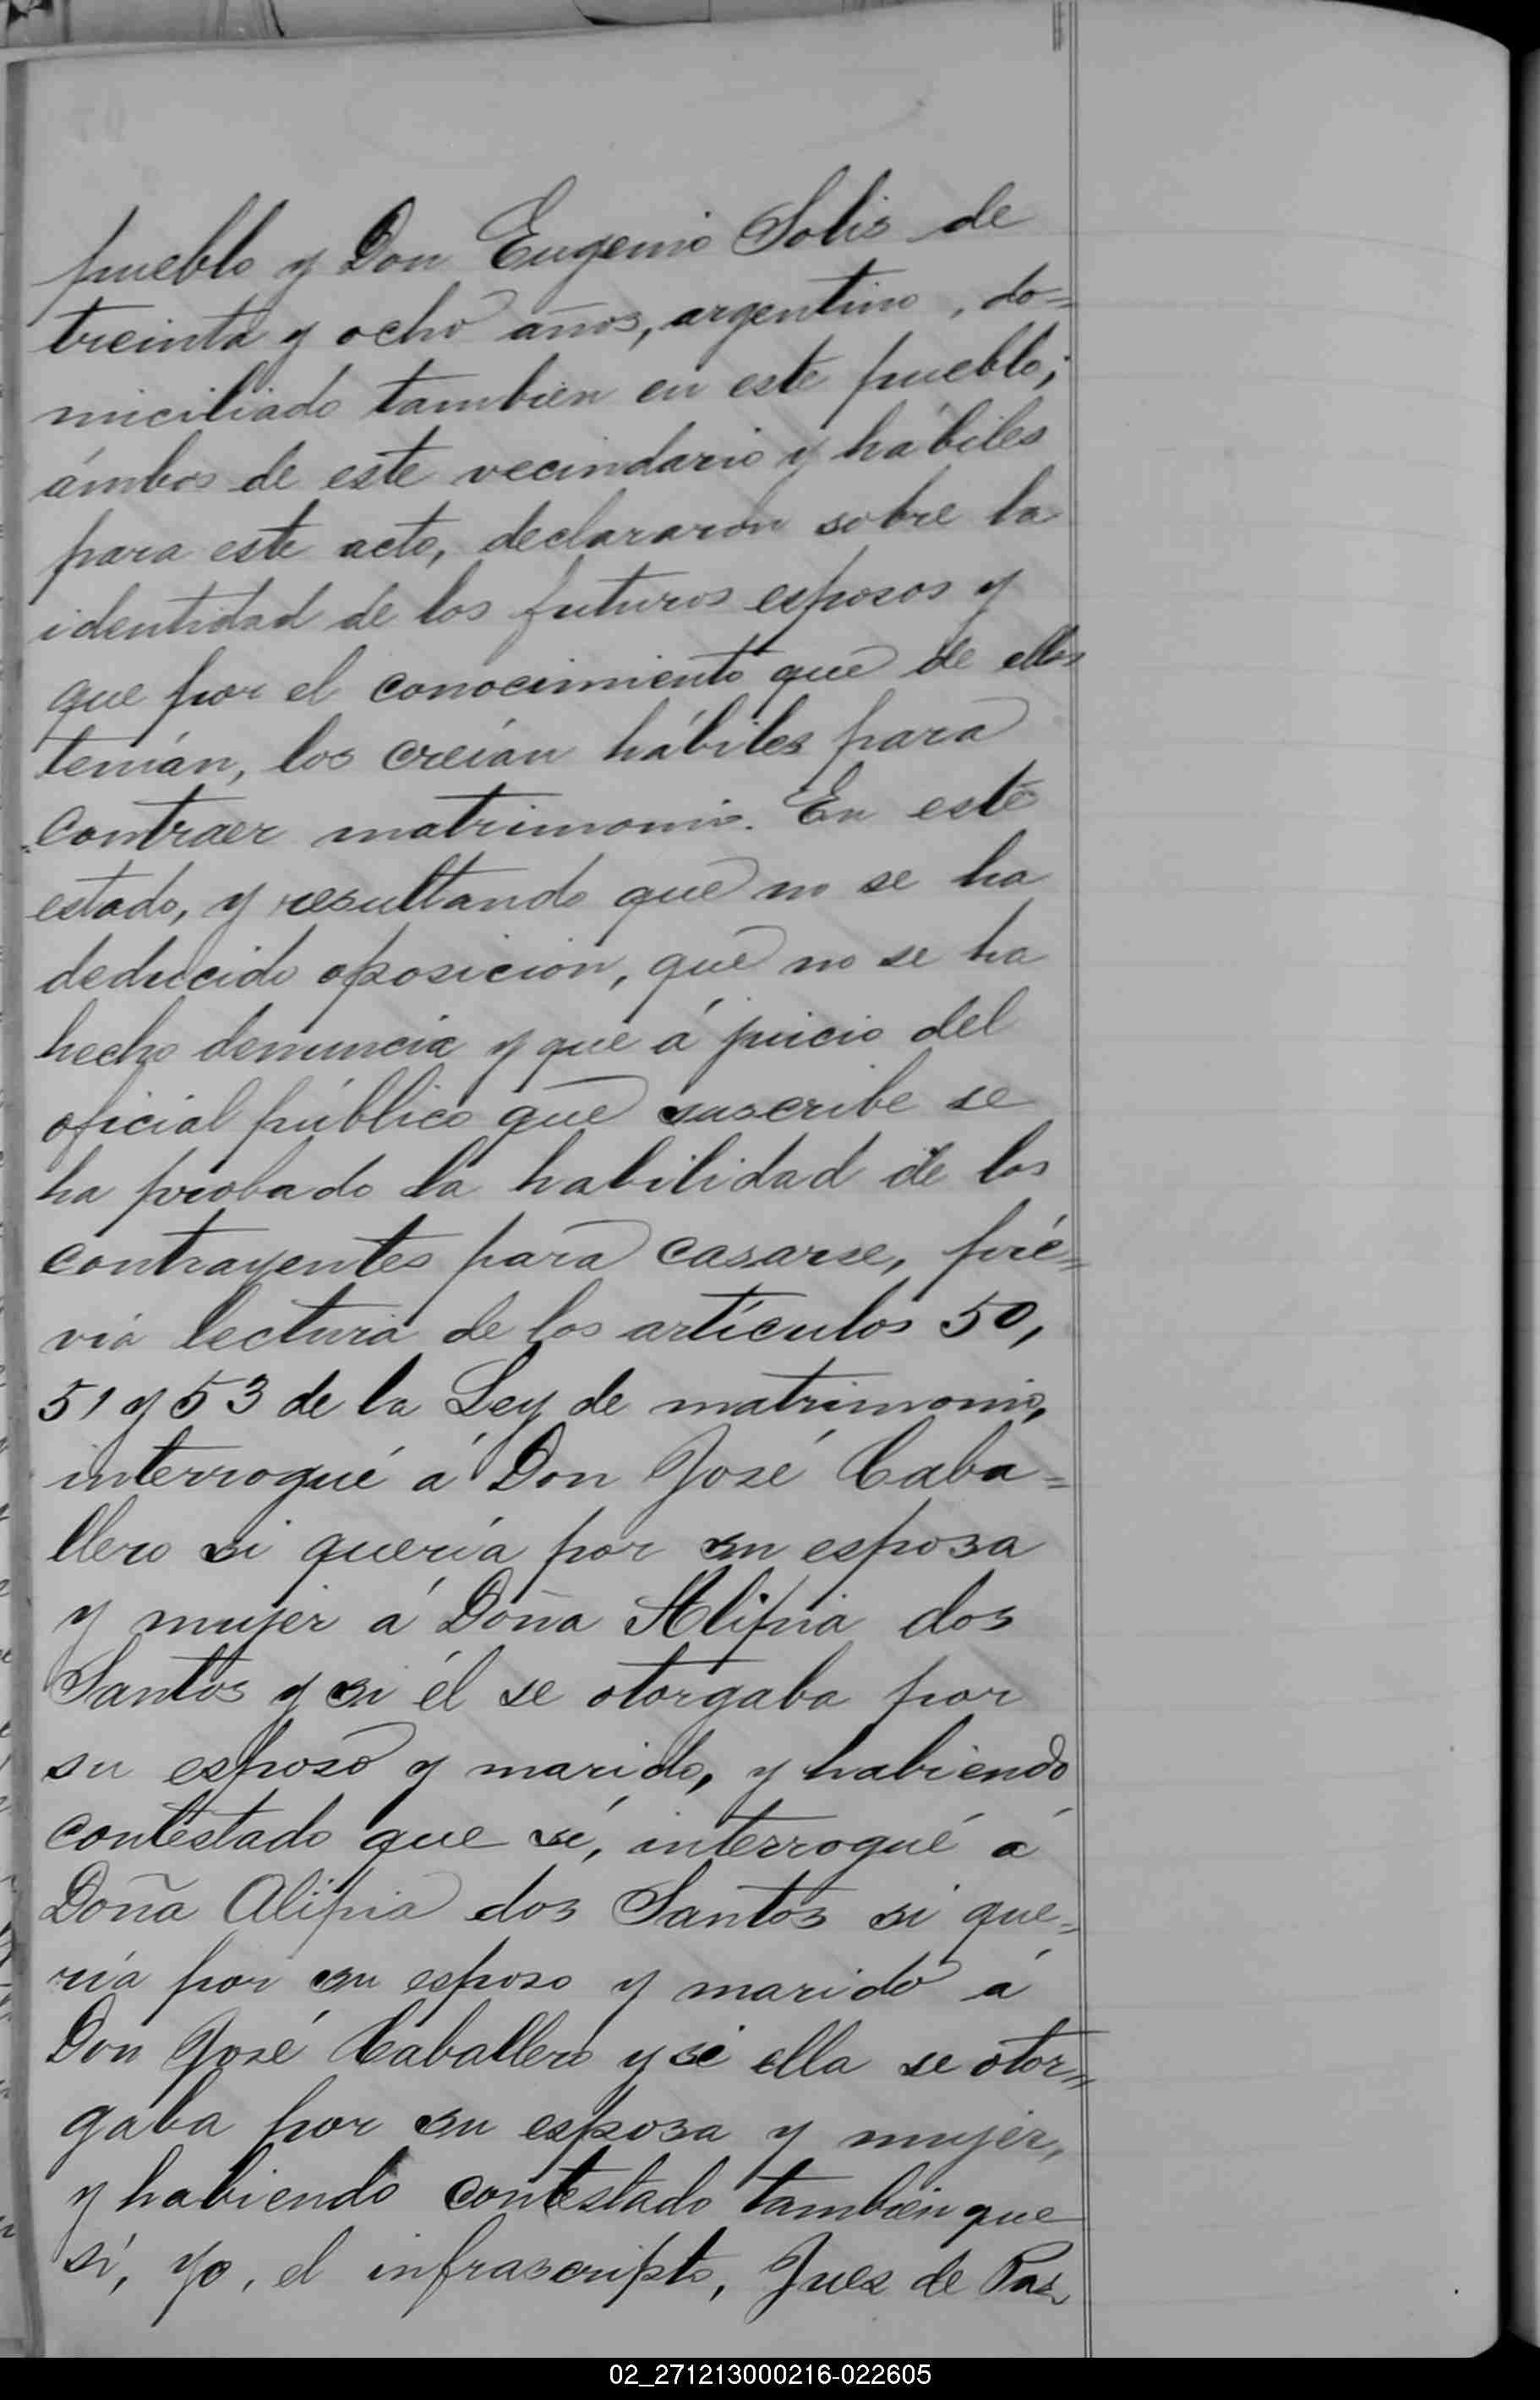 pueblo y Don Eugenio Solis de
treinta y ocho años, argentino, do=
miciliado tambien en este pueblo;
ámbos de este vecindario y hábiles
para este acto, declararon sobre la
identidad de los futuros esposos y
que por el conocimiento que de ellos
tenían, los creían hábiles para
contraer matrimonio. En este
estado, y resultando que no se ha
deducido oposición, que no se ha
hecho denuncia y que á juicio del
oficial público que suscribe se
ha probado la habilidad de los
contrayentes para casarse, pré=
via lectura de los artículos 50,
51 y 53 de la Ley de matrimonio,
interrogué á Don José Caba=
llero si quería por su esposa
y mujer á Doña Alipia dos
Santos y si él se otorgaba por
su esposo y marido, y habiendo
contestado que sí, interrogué á
Doña Alipia dos Santos si que=
ría por su esposo y marido á
Don José Caballero y si ella se otor=
gaba por su esposa y mujer,
y habiendo contestado también que
sí, yo, el infrascripto, Juez de Paz
02_271213000216-022605